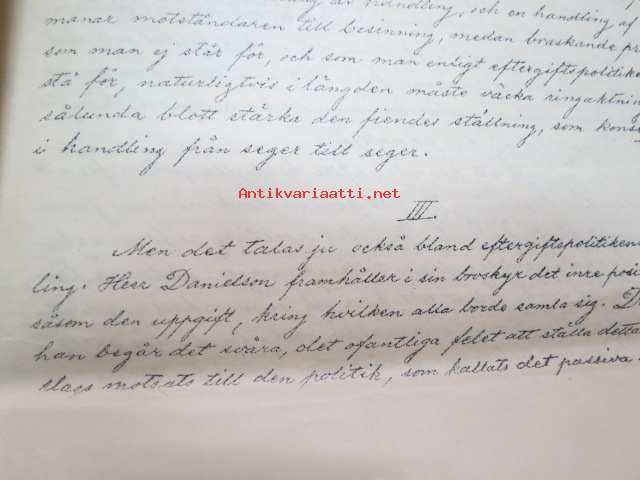 af handling, och en handling af
manar motståndaren till besinning, medan braskande
som man ej står för, och som man enligt eftergiftspolitike
stå för, naturligtvis i längden måste väcka ringaktnin
sålunda blott stärka den fiendes ställning, som kons
i handling från seger till seger.
Antikvariaatti.net
III.
Men det talas ju också bland eftergiftspolitiken
ling. Herr Danielson framhåller i sin broskyr det inre posi
såsom den uppgift, kring hvilken alla borde samla sig. D
han begår det svåra, det ofantliga felet att ställa detta
slags motsats till den politik, som kallats det passiva